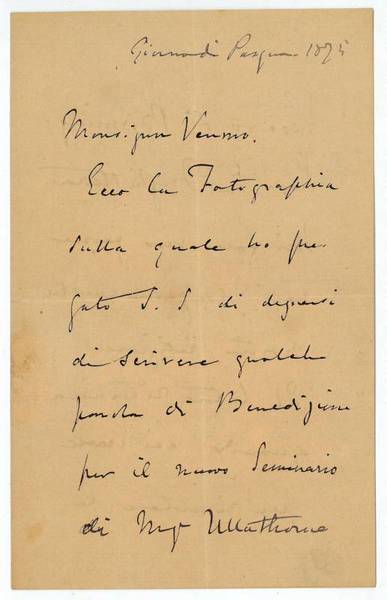 Giorno di Pasqua 1875
Monsignor Venmo.
Ecco la Fotographia
sulla quale ho pre-
gato S. S di degnarsi
di scrivere qualche
parola di Benedizione
per il nuovo Seminario
di Mgr Ullathorne